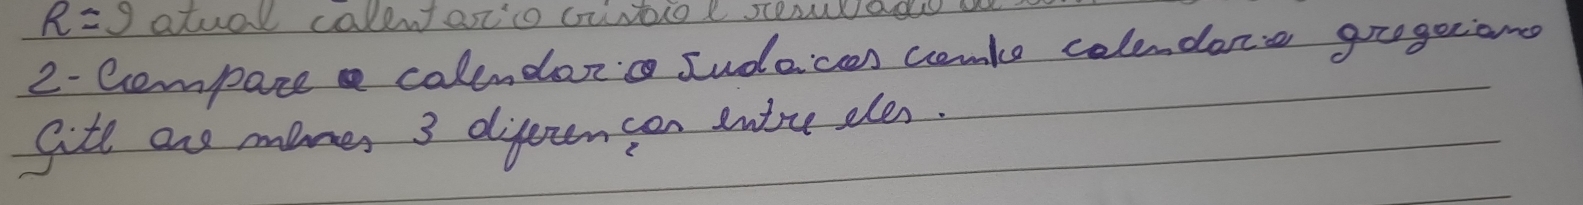 R = O atual calentario cristão é resultado
2- Compare o calendario Judaicos com o calendario gregoriano
Cite ao menos 3 diferenças entre eles.